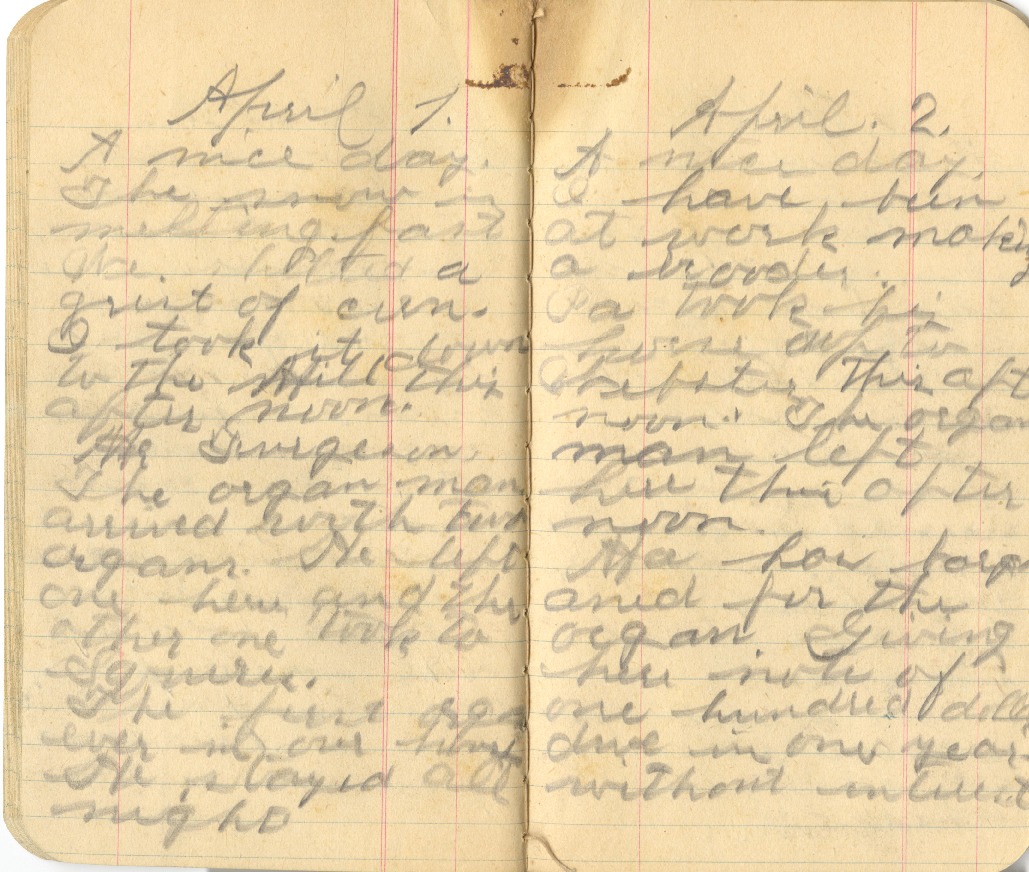 April 1.
A nice day.
The snow is
melting fast
Pa a
grist of corn.
I took it down
to the Mill this
after noon.
The organ man
arrived with two
organs. He left
one here and the
other one took to
The first orga
ever in our
He stayed all
night
April. 2.
A nice day,
I have been
at work making
a brooder.
Pa took his
horse up to
Webster this aft
noon. The organ
man left
here this after
noon.
Ma has barg
aned for the
organ Giving
here note of
one hundred doll
due in one year
without interest